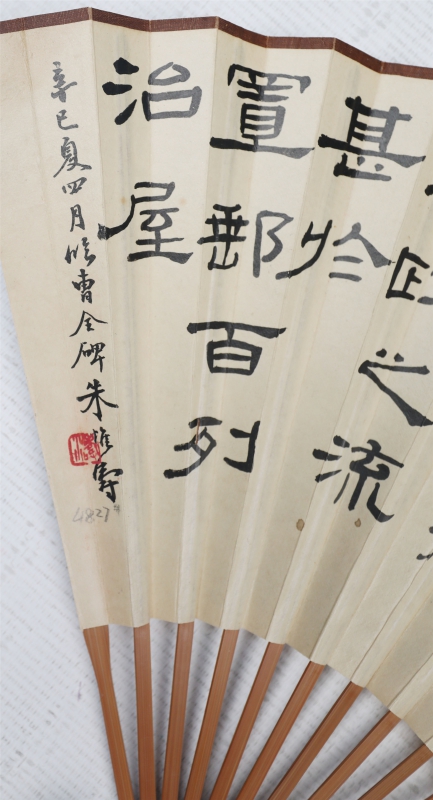 之流
甚於
置郵百列
治屋
辛巳夏四月临曹全碑朱
4827#